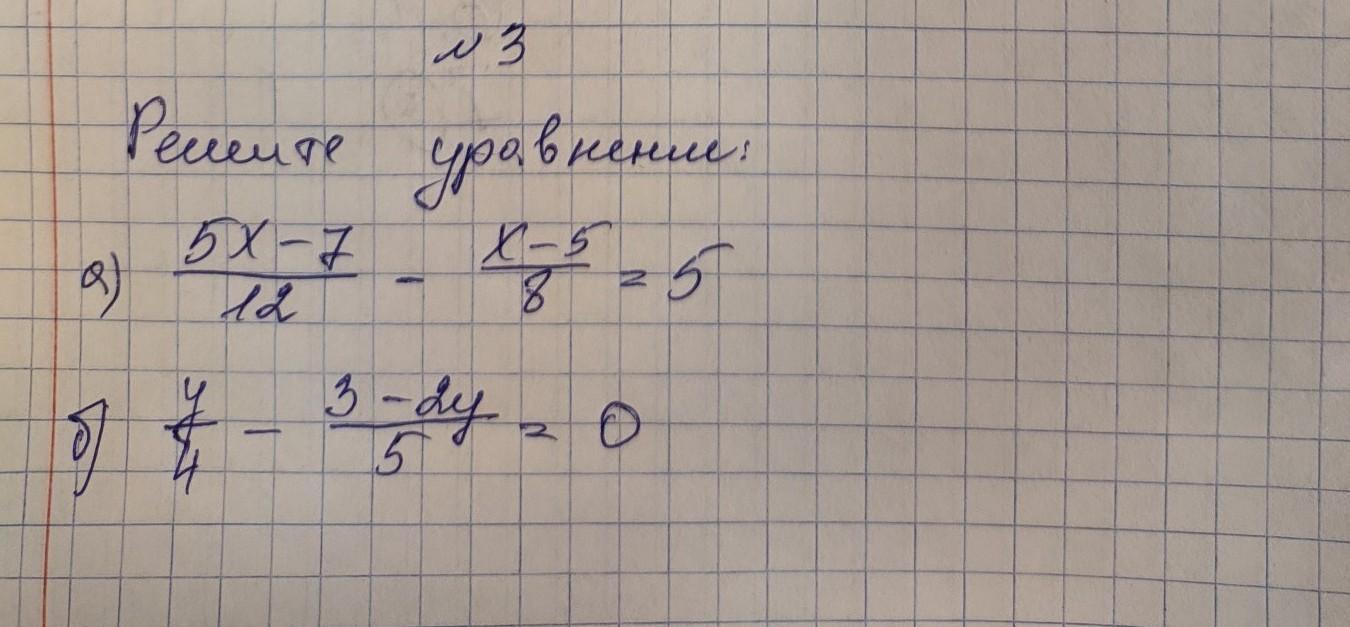 №3
Решите уравнение:
а) (5x-7)/12 - (x-5)/8 = 5
б) y/4 - (3-2y)/5 = 0